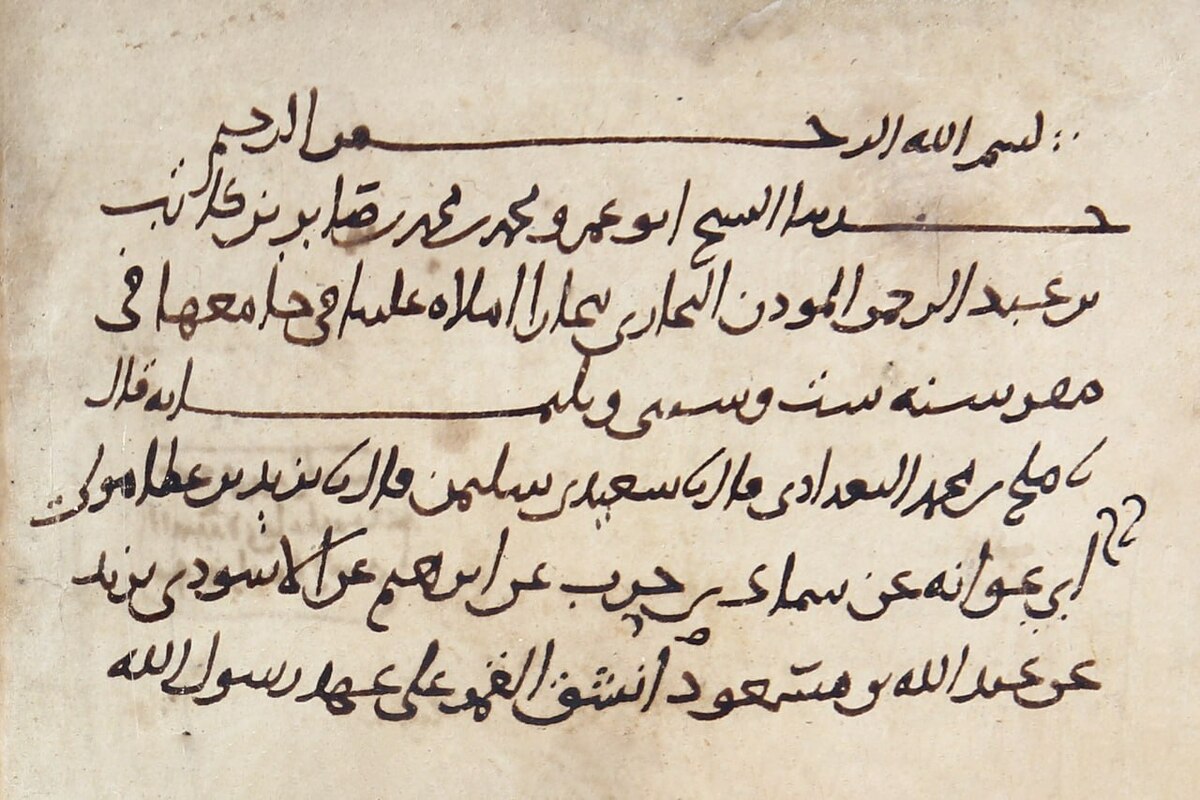 بسم الله الرحمن الرحيم
حدثنا الشيخ ابو عمرو محمد بن محمد بن صابر بن كاتب
بن عبد الرحمن الموذن البخاري ببخارا املاه علينا في جامعها في
سنه ست وسبعين وثلثمايه قال
نا محمد البغدادي قال نا سعيد بن سليمن قال نا يزيد بن عطا مولى
ابي عوانه عن سماك بن حرب عن ابرهيم عن الاسود بن يزيد
عن عبد الله بن مسعود انشق القمر على عهد رسول الله